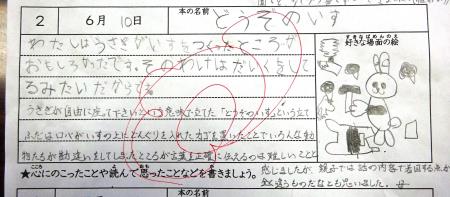 2 6月10日 本の名前 どうぞのいす
わたしはうさぎがいすをつくったところが
おもしろかったです。そのわけはだいくをして
るみたいだからです。
好きな場面の絵
うさぎが自由に座って下さいという意味で立てた「どうぞのいす」という立て
ふだはロバがいすの上にどんぐりを入れたカゴを置いたことでいろんな動
物たちが勘違いをしてしまったところが言葉を正確に伝えるのは難しいことと
★心にのこったことや読んで思ったことなどを書きましょう。
感じましたが 親子では話の内容で着目する点が
全く違うものだなとも思いました。母
月 日 本の名前